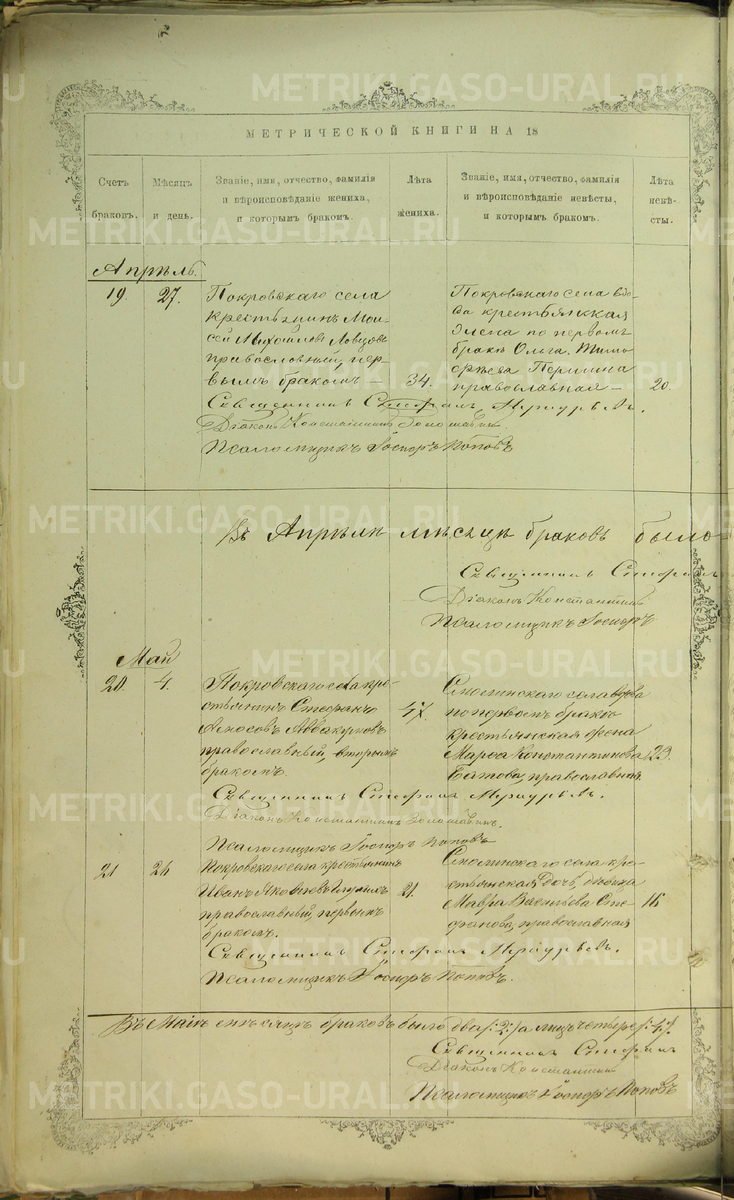 METRIKI.GASO-URAL.RU
МЕТРИЧЕСКОЙ КНИГИ НА 18
Счетъ браковъ.
Мѣсяцъ и день.
Званіе, имя, отчество, фамилія и вѣроисповѣданіе жениха, и которымъ бракомъ.
Лѣта жениха.
Званіе, имя, отчество, фамилія и вѣроисповѣданіе невѣсты, и которымъ бракомъ.
Лѣта невѣсты.
Апрѣль.
19.
27.
Покровскаго села
крестьянинъ Мои-
сей Михайловъ Ловцовъ
православный, пер
вымъ бракомъ —
34.
Покровскаго села вдо-
ва крестьянская
жена по первомъ
бракѣ Ольга. Тимо
ѳеева Першина
православная —
20.
Священникъ Стефанъ Меркурьевъ.
Діаконъ Константинъ
Псаломщикъ Поповъ
Въ Апрѣлѣ мѣсяцѣ браковъ было
Священникъ Стефанъ
Діаконъ Константинъ
Псаломщикъ
Май
20.
4.
Покровскаго села кре-
стьянинъ Стефанъ
Аввакумовъ
православный, вторымъ
бракомъ.
47.
села вдова
по первомъ бракѣ
крестьянская жена
Марѳа Константинова
православная
23.
Священникъ Стефанъ Меркурьевъ.
Діаконъ Константинъ
Псаломщикъ Поповъ
21
Покровскаго села крестьянинъ
Иванъ Яковлевъ
православный, первымъ
бракомъ.
21.
села кре-
стьянская дочь, дѣвица
Мавра Васильева Сте
фанова, православная
16
Священникъ Стефанъ Меркурьевъ.
Псаломщикъ Поповъ.
Въ Маѣ мѣсяцѣ браковъ было два /:2:/ а лицъ четверо /:4:/.
Священникъ Стефанъ
Діаконъ Константинъ
Псаломщикъ Поповъ